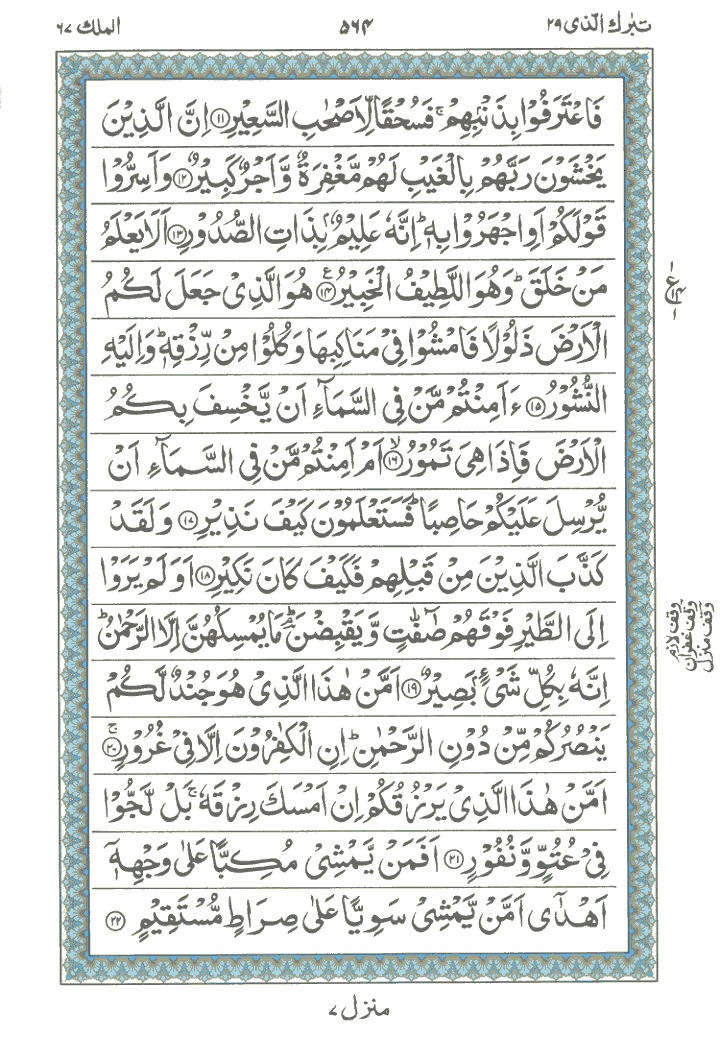 تبٰرك الّذی ۲۹
۵۶۴
الملك ۶۷
فَاعْتَرَفُوْا بِذَنْۢبِهِمْ ۚ فَسُحْقًا لِّاَصْحٰبِ السَّعِيْرِ ۝۱۱ اِنَّ الَّذِيْنَ
يَخْشَوْنَ رَبَّهُمْ بِالْغَيْبِ لَهُمْ مَّغْفِرَةٌ وَّاَجْرٌ كَبِيْرٌ ۝۱۲ وَاَسِرُّوْا
قَوْلَكُمْ اَوِ اجْهَرُوْا بِهٖ ؕ اِنَّهٗ عَلِيْمٌۢ بِذَاتِ الصُّدُوْرِ ۝۱۳ اَلَا يَعْلَمُ
مَنْ خَلَقَ ؕ وَهُوَ اللَّطِيْفُ الْخَبِيْرُ ۝۱۴ هُوَ الَّذِيْ جَعَلَ لَكُمُ
الْاَرْضَ ذَلُوْلًا فَامْشُوْا فِيْ مَنَاكِبِهَا وَكُلُوْا مِنْ رِّزْقِهٖ ؕ وَاِلَيْهِ
النُّشُوْرُ ۝۱۵ ءَاَمِنْتُمْ مَّنْ فِي السَّمَآءِ اَنْ يَّخْسِفَ بِكُمُ
الْاَرْضَ فَاِذَا هِيَ تَمُوْرُ ۝۱۶ اَمْ اَمِنْتُمْ مَّنْ فِي السَّمَآءِ اَنْ
يُّرْسِلَ عَلَيْكُمْ حَاصِبًا ؕ فَسَتَعْلَمُوْنَ كَيْفَ نَذِيْرِ ۝۱۷ وَلَقَدْ
كَذَّبَ الَّذِيْنَ مِنْ قَبْلِهِمْ فَكَيْفَ كَانَ نَكِيْرِ ۝۱۸ اَوَلَمْ يَرَوْا
اِلَى الطَّيْرِ فَوْقَهُمْ صٰٓفّٰتٍ وَّيَقْبِضْنَ ؔۘؕ مَا يُمْسِكُهُنَّ اِلَّا الرَّحْمٰنُ ؕ
اِنَّهٗ بِكُلِّ شَيْءٍۢ بَصِيْرٌ ۝۱۹ اَمَّنْ هٰذَا الَّذِيْ هُوَ جُنْدٌ لَّكُمْ
يَنْصُرُكُمْ مِّنْ دُوْنِ الرَّحْمٰنِ ؕ اِنِ الْكٰفِرُوْنَ اِلَّا فِيْ غُرُوْرٍ ۚ ۝۲۰
اَمَّنْ هٰذَا الَّذِيْ يَرْزُقُكُمْ اِنْ اَمْسَكَ رِزْقَهٗ ۚ بَلْ لَّجُّوْا
فِيْ عُتُوٍّ وَّنُفُوْرٍ ۝۲۱ اَفَمَنْ يَّمْشِيْ مُكِبًّا عَلٰى وَجْهِهٖٓ
اَهْدٰٓى اَمَّنْ يَّمْشِيْ سَوِيًّا عَلٰى صِرَاطٍ مُّسْتَقِيْمٍ ۝۲۲
ع
۱۴
وقف لازم
وقف غفران
وقف منزل
منزل ۷